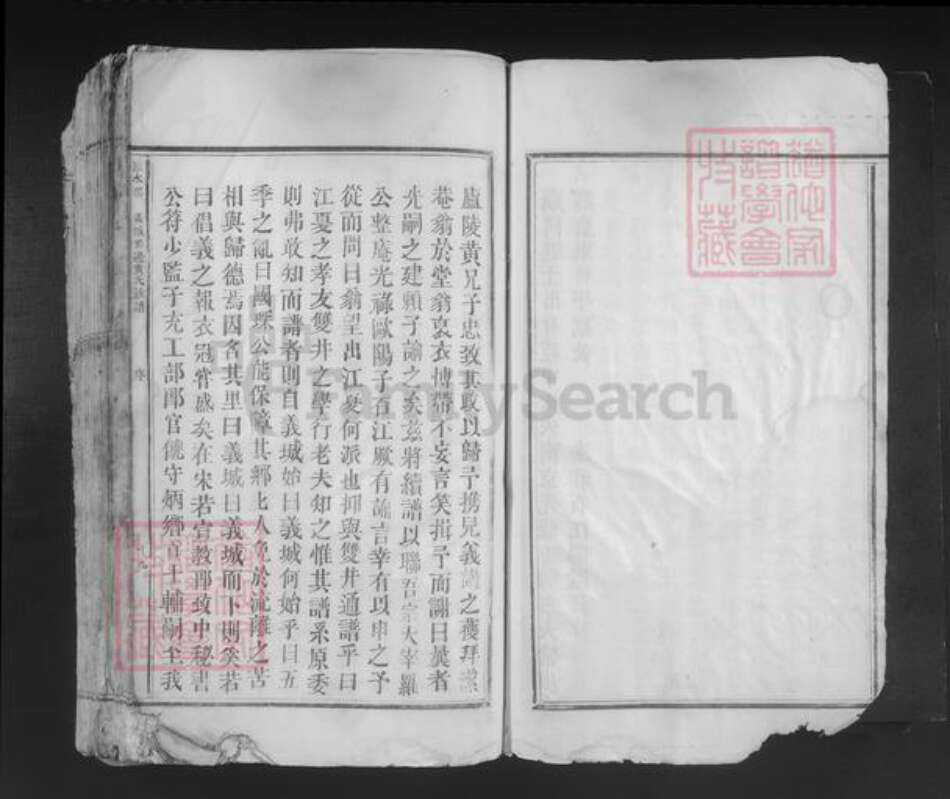 廬陵黃兄子忠致其政以歸予携兄義訓之薩拜濮
巷翁於堂翁裒衣博帶不妄言笑揖予而謝曰曩者
先嗣之建賴子諭之矣茲將續譜以聯吾宗大宰羅
公整庵光祿歐陽子石江厥有諭言幸有以申之予
從而問曰翁望出江夏何派也抑與雙井通譜乎曰
江夏之孝友雙井之學行老夫知之惟其譜系原委
則弗敢知而譜者則自義城始曰義城何始乎曰五
季之亂曰國琛公能保障其鄉比人免於流離之苦
相與歸德焉因名其里曰義城曰義城而下則奚若
曰倡義之報衣冠嘗盛矣在宋若宣教郎致中秘書
公符少監子充工部郎官僥守炳鄉貢士輔嗣至我
黃氏族譜
序
猶他家譜學會收藏
FamilySearch